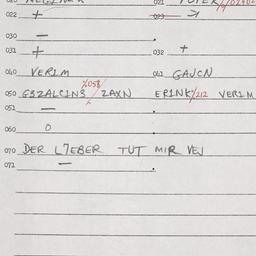 022 +
030 —
031 + 032 +
040 VERIM 041 GAJCN
050 ZAXN ERINK/212 VERIM
051 —
060 0
070 DER L7EBER TUT MIR VEJ
071 —